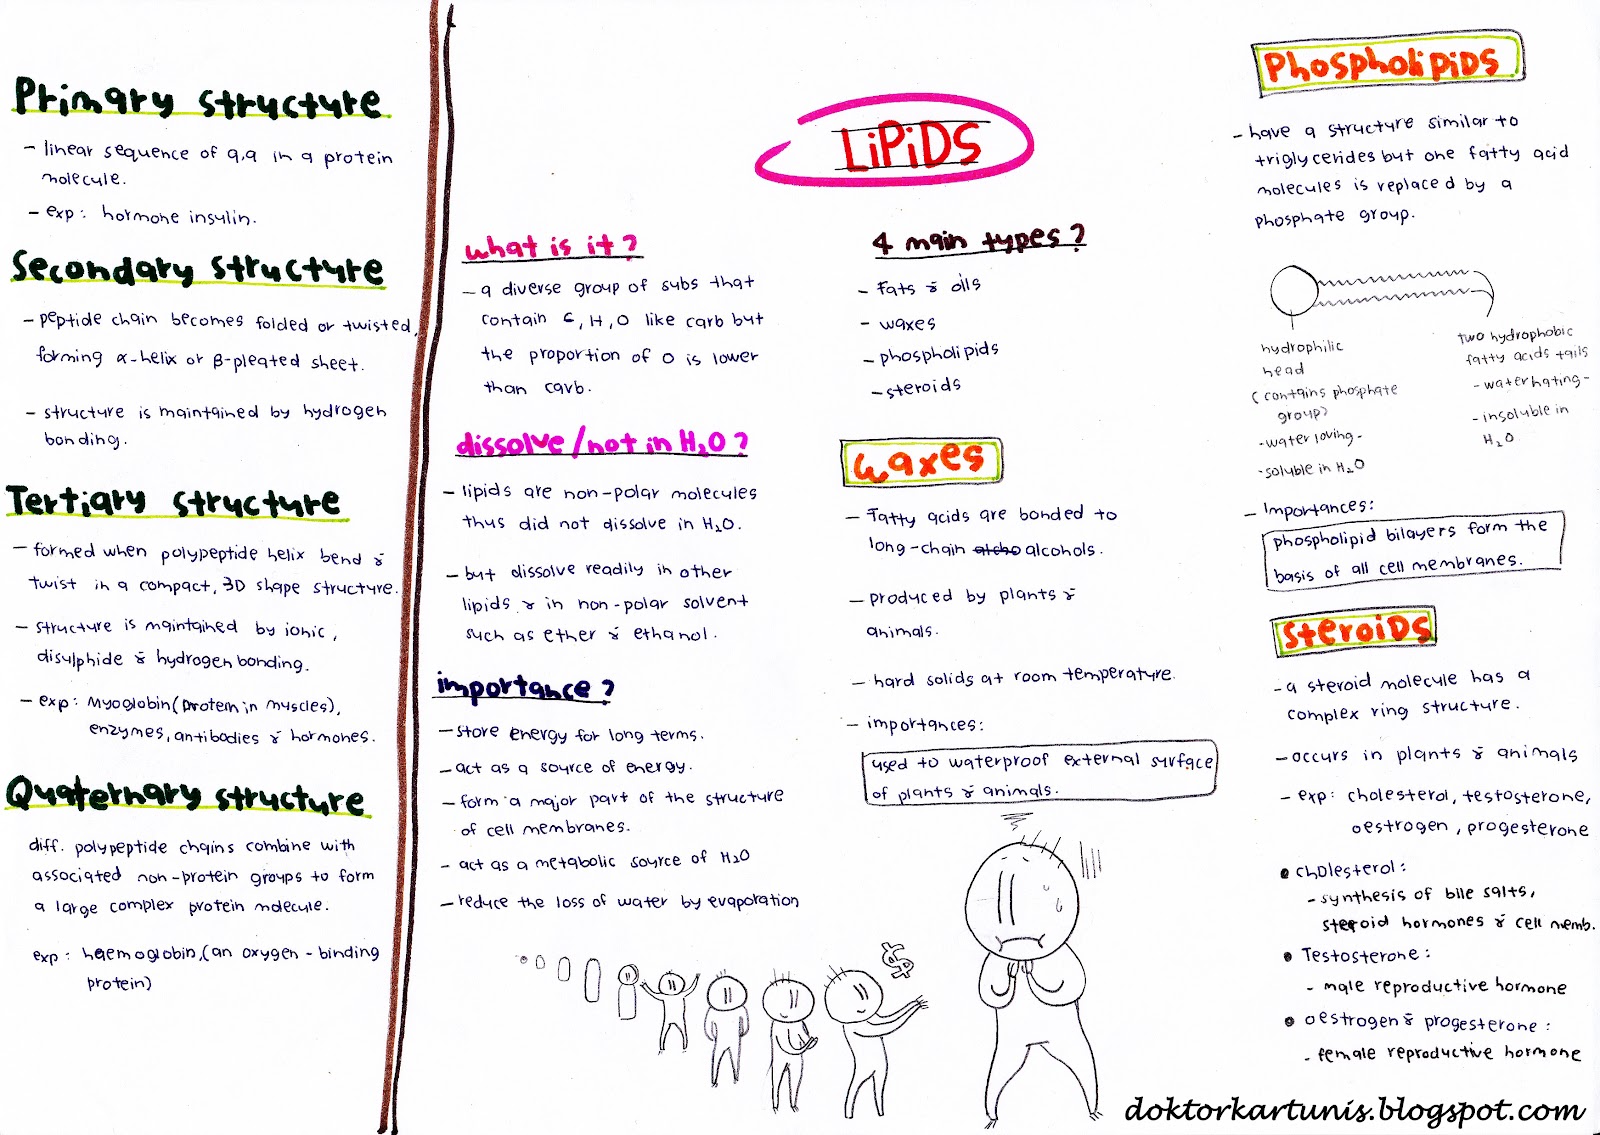 Primary structure
- linear sequence of a.a in a protein
molecule.
- exp: hormone insulin.
Secondary structure
- peptide chain becomes folded or twisted,
forming α-helix or β-pleated sheet.
- structure is maintained by hydrogen
bonding.
Tertiary structure
- formed when polypeptide helix bend &
twist in a compact, 3D shape structure.
- structure is maintained by ionic,
disulphide & hydrogen bonding.
- exp: Myoglobin (protein in muscles),
enzymes, antibodies & hormones.
Quaternary structure
diff. polypeptide chains combine with
associated non-protein groups to form
a large complex protein molecule.
exp: haemoglobin, (an oxygen-binding
protein)
LiPiDS
what is it?
- a diverse group of subs that
contain C, H, O like carb but
the proportion of O is lower
than carb.
dissolve/not in H₂O?
- lipids are non-polar molecules
thus did not dissolve in H₂O.
- but dissolve readily in other
lipids & in non-polar solvent
such as ether & ethanol.
importance?
- store energy for long terms.
- act as a source of energy.
- form a major part of the structure
of cell membranes.
- act as a metabolic source of H₂O
- reduce the loss of water by evaporation
4 main types?
- Fats & oils
- waxes
- phospholipids
- steroids
waxes
- Fatty acids are bonded to
long-chain alcho alcohols.
- produced by plants &
animals.
- hard solids at room temperature.
- importances:
used to waterproof external surface
of plants & animals.
$
PhosphoLiPiDS
- have a structure similar to
triglycerides but one fatty acid
molecules is replaced by a
phosphate group.
hydrophilic
head
(contains phosphate
group)
-water loving-
-soluble in H₂O
two hydrophobic
fatty acids tails
-water hating-
-insoluble in
H₂O
- Importances:
phospholipid bilayers form the
basis of all cell membranes.
SteroiDS
- a steroid molecule has a
complex ring structure.
- occurs in plants & animals
- exp: cholesterol, testosterone,
oestrogen, progesterone
• cholesterol:
- synthesis of bile salts,
steroid hormones & cell memb.
• Testosterone:
- male reproductive hormone
• oestrogen & progesterone:
- female reproductive hormone
doktorkartunis.blogspot.com